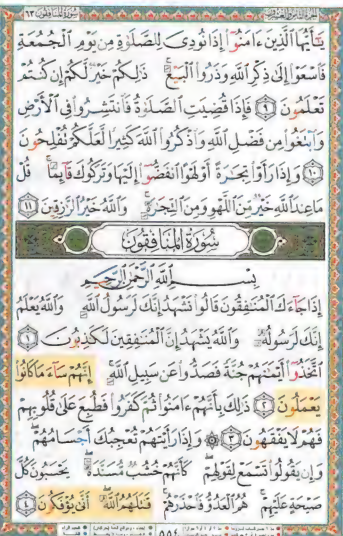 يَـٰٓأَيُّهَا ٱلَّذِينَ ءَامَنُوٓا۟ إِذَا نُودِىَ لِلصَّلَوٰةِ مِن يَوْمِ ٱلْجُمُعَةِ
فَٱسْعَوْا۟ إِلَىٰ ذِكْرِ ٱللَّهِ وَذَرُوا۟ ٱلْبَيْعَ ۚ ذَٰلِكُمْ خَيْرٌ لَّكُمْ إِن كُنتُمْ
تَعْلَمُونَ ٩ فَإِذَا قُضِيَتِ ٱلصَّلَوٰةُ فَٱنتَشِرُوا۟ فِى ٱلْأَرْضِ
وَٱبْتَغُوا۟ مِن فَضْلِ ٱللَّهِ وَٱذْكُرُوا۟ ٱللَّهَ كَثِيرًا لَّعَلَّكُمْ تُفْلِحُونَ
١٠ وَإِذَا رَأَوْا۟ تِجَـٰرَةً أَوْ لَهْوًا ٱنفَضُّوٓا۟ إِلَيْهَا وَتَرَكُوكَ قَآئِمًا ۚ قُلْ
مَا عِندَ ٱللَّهِ خَيْرٌ مِّنَ ٱللَّهْوِ وَمِنَ ٱلتِّجَـٰرَةِ ۚ وَٱللَّهُ خَيْرُ ٱلرَّٰزِقِينَ ١١
سُورَةُ المُنَافِقُونَ
بِسْمِ ٱللَّهِ ٱلرَّحْمَـٰنِ ٱلرَّحِيمِ
إِذَا جَآءَكَ ٱلْمُنَـٰفِقُونَ قَالُوا۟ نَشْهَدُ إِنَّكَ لَرَسُولُ ٱللَّهِ ۗ وَٱللَّهُ يَعْلَمُ
إِنَّكَ لَرَسُولُهُۥ وَٱللَّهُ يَشْهَدُ إِنَّ ٱلْمُنَـٰفِقِينَ لَكَـٰذِبُونَ ١
ٱتَّخَذُوٓا۟ أَيْمَـٰنَهُمْ جُنَّةً فَصَدُّوا۟ عَن سَبِيلِ ٱللَّهِ ۚ إِنَّهُمْ سَآءَ مَا كَانُوا۟
يَعْمَلُونَ ٢ ذَٰلِكَ بِأَنَّهُمْ ءَامَنُوا۟ ثُمَّ كَفَرُوا۟ فَطُبِعَ عَلَىٰ قُلُوبِهِمْ
فَهُمْ لَا يَفْقَهُونَ ٣ ۞ وَإِذَا رَأَيْتَهُمْ تُعْجِبُكَ أَجْسَامُهُمْ ۖ
وَإِن يَقُولُوا۟ تَسْمَعْ لِقَوْلِهِمْ ۖ كَأَنَّهُمْ خُشُبٌ مُّسَنَّدَةٌ ۖ يَحْسَبُونَ كُلَّ
صَيْحَةٍ عَلَيْهِمْ ۚ هُمُ ٱلْعَدُوُّ فَٱحْذَرْهُمْ ۚ قَـٰتَلَهُمُ ٱللَّهُ ۖ أَنَّىٰ يُؤْفَكُونَ ٤
٥٥٤